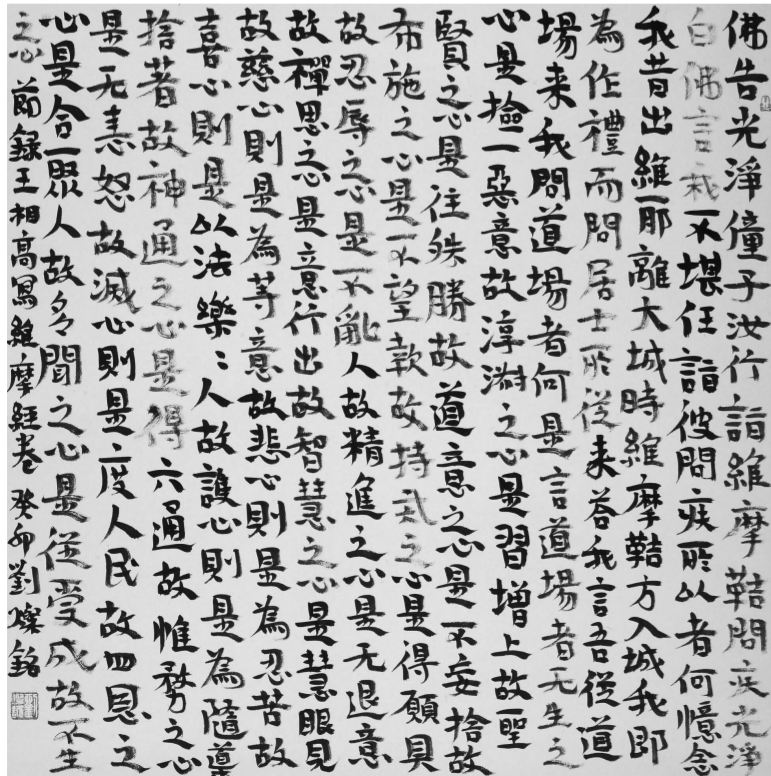 佛告光淨僮子汝行詣維摩鞊問疾光淨
白佛言我不堪任詣彼問疾所以者何憶念
我昔出維耶離大城時維摩鞊方入城我即
為作禮而問居士所從来荅我言吾從道
場来我問道場者何是言道場者无生之
心是撿一惡意故淳淑之心是習增上故聖
賢之心是往殊勝故道意之心是不妄捨故
布施之心是不望報故持戒之心是得願具
故忍辱之心是不亂人故精進之心是无退意
故禪思之心是意行出故智慧之心是慧眼見
故慈心則是為等意故悲心則是為忍苦故
喜心則是以法樂〻人故護心則是為隨導
捨著故神通之心是得六通故惟務之心
是无恚怒故滅心則是度人民故四恩之
心是合聚人故多聞之心是從受成故不生
之心 節錄王相高寫維摩經卷 癸卯劉燦銘